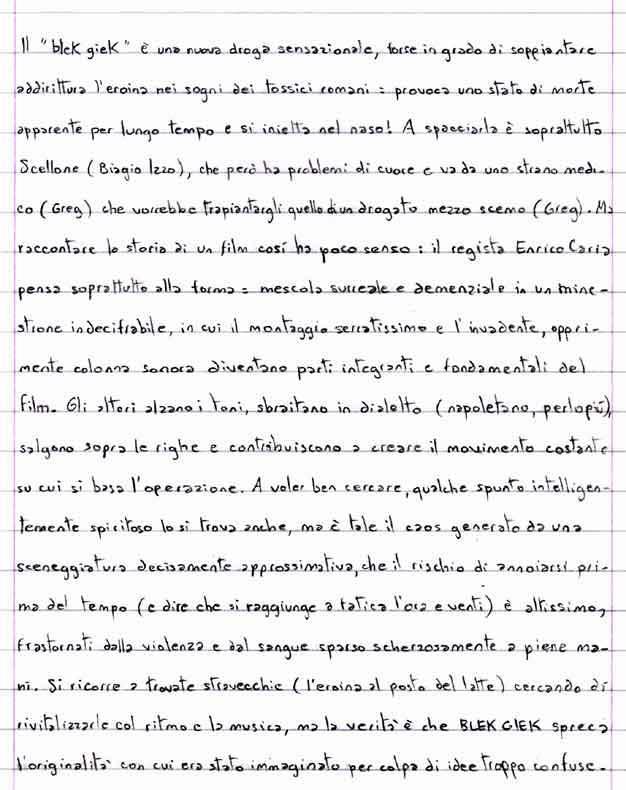 Il "blek giek" è una nuova droga sensazionale, forse in grado di soppiantare
addirittura l'eroina nei sogni dei tossici romani: provoca uno stato di morte
apparente per lungo tempo e si inietta nel naso! A spacciarla è soprattutto
Scellone (Biagio Izzo), che però ha problemi di cuore e va da uno strano medi-
co (Greg) che vorrebbe trapiantargli quello di un drogato mezzo scemo (Greg). Ma
raccontare la storia di un film così ha poco senso: il regista Enrico Caria
pensa soprattutto alla forma: mescola surreale e demenziale in un mine-
strone indecifrabile, in cui il montaggio serratissimo e l'invadente, oppri-
mente colonna sonora diventano parti integranti e fondamentali del
film. Gli attori alzano i toni, sbraitano in dialetto (napoletano, perlopiù),
salgono sopra le righe e contribuiscono a creare il movimento costante
su cui si basa l'operazione. A voler ben cercare, qualche spunto intelligen-
temente spiritoso lo si trova anche, ma è tale il caos generato da una
sceneggiatura decisamente approssimativa, che il rischio di annoiarsi pri-
ma del tempo (e dire che si raggiunge a fatica l'ora e venti) è altissimo,
frastornati dalla violenza e dal sangue sparso scherzosamente a piene ma-
ni. Si ricorre a trovate stravecchie (l'eroina al posto del latte) cercando di
rivitalizzarle col ritmo e la musica, ma la verità è che BLEK GIEK spreca
l'originalità con cui era stato immaginato per colpa di idee troppo confuse.